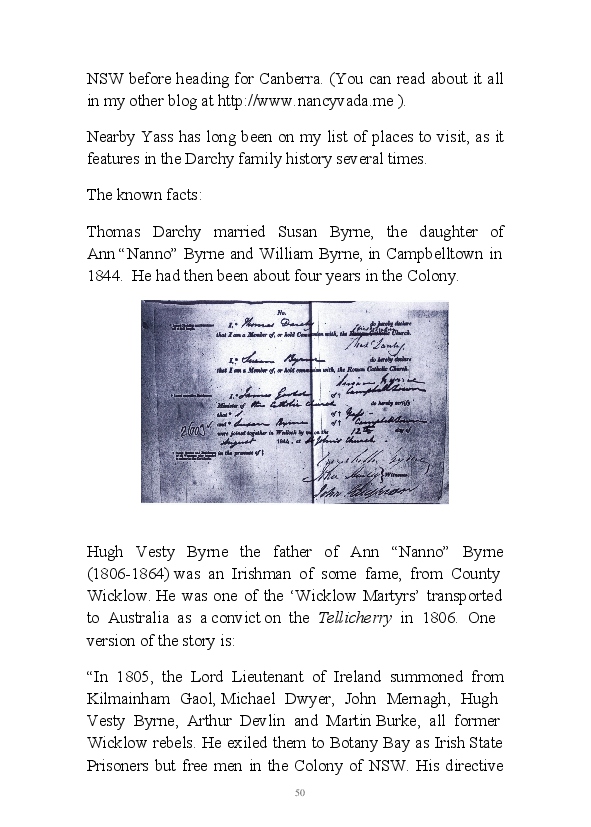 NSW before heading for Canberra. (You can read about it all
in my other blog at http://www.nancyvada.me ).
Nearby Yass has long been on my list of places to visit, as it
features in the Darchy family history several times.
The known facts:
Thomas Darchy married Susan Byrne, the daughter of
Ann “Nanno” Byrne and William Byrne, in Campbelltown in
1844. He had then been about four years in the Colony.
No.
I, Thomas Darchy do hereby declare
that I am a Member of, or hold Communion with, the Roman Catholic Church.
Thos Darchy
I, Susan Byrne do hereby declare
that I am a Member of, or hold communion with, the Roman Catholic Church.
Susan Byrne
I, James of Campbelltown
Minister of the Catholic Church do hereby certify
that of Yass
and Susan Byrne of Campbelltown
were joined together in Wedlock by me on the 12th day of
August 1844, at St John's Church
in the presence of Witnesses
John
Hugh Vesty Byrne the father of Ann “Nanno” Byrne
(1806-1864) was an Irishman of some fame, from County
Wicklow. He was one of the ‘Wicklow Martyrs’ transported
to Australia as a convict on the Tellicherry in 1806. One
version of the story is:
“In 1805, the Lord Lieutenant of Ireland summoned from
Kilmainham Gaol, Michael Dwyer, John Mernagh, Hugh
Vesty Byrne, Arthur Devlin and Martin Burke, all former
Wicklow rebels. He exiled them to Botany Bay as Irish State
Prisoners but free men in the Colony of NSW. His directive
50